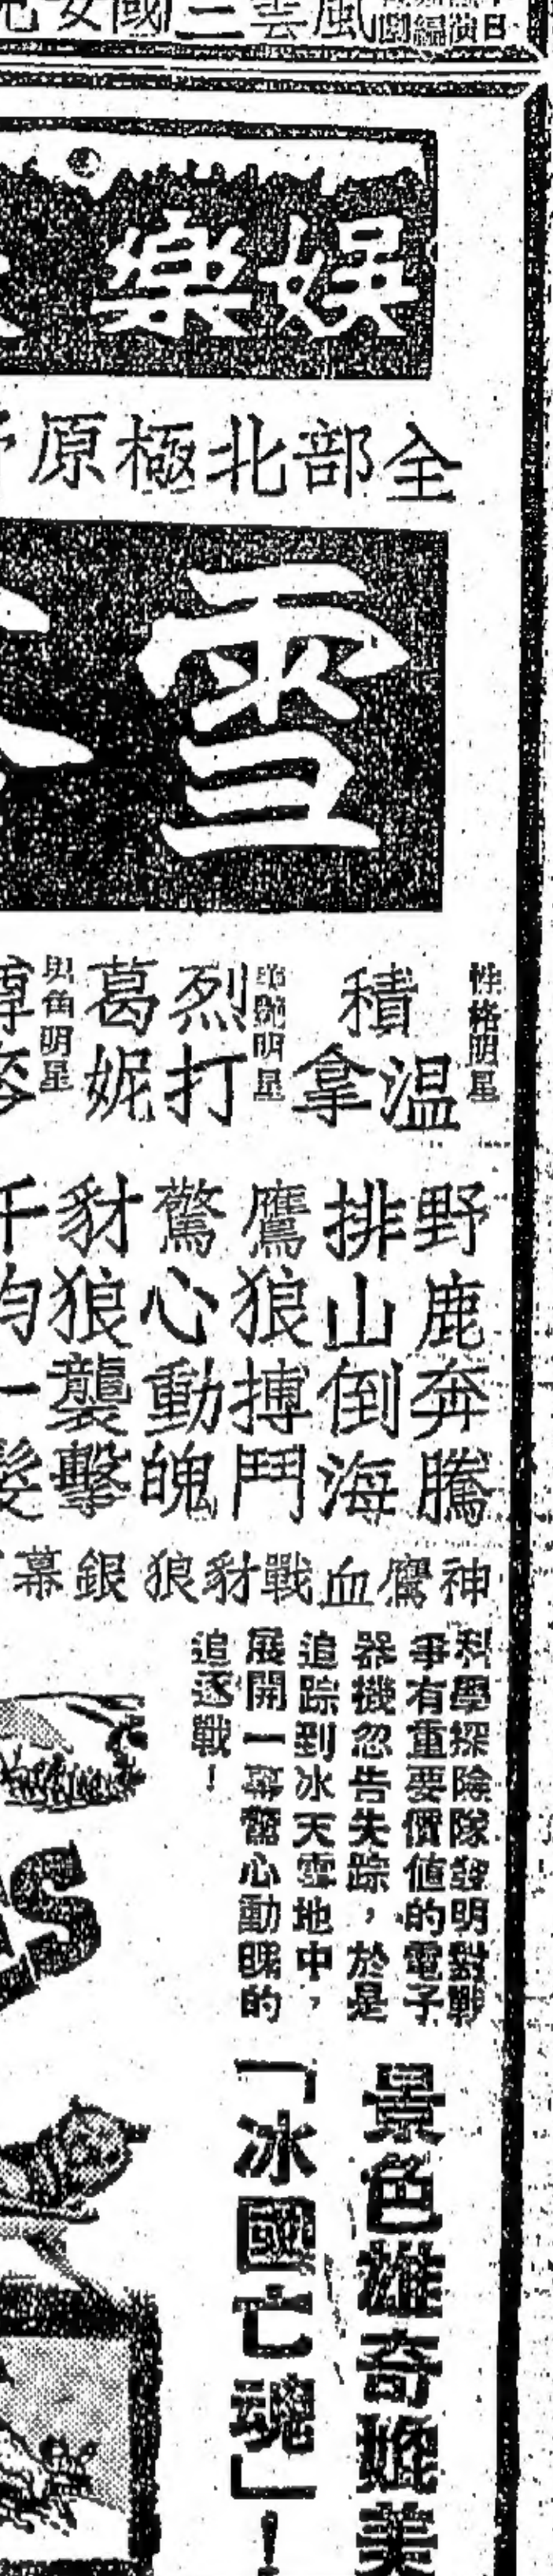 風雲三國女
娛樂
全部北極原
雪
性格明星
積温拿
艷明星
烈打
葛妮
明星
野鹿奔騰
排山倒海
鷹狼搏鬥
驚心動魄
豺狼襲擊
千鈞一髮
神鷹血戰豺狼銀幕
科學探險隊發明對戰
爭有重要價值的電子
器機忽告失踪，於是
追踪到冰天雪地中，
展開一幕驚心動魄的
追逐戰！
景色雄奇媲美
「冰國亡魂」！
AS